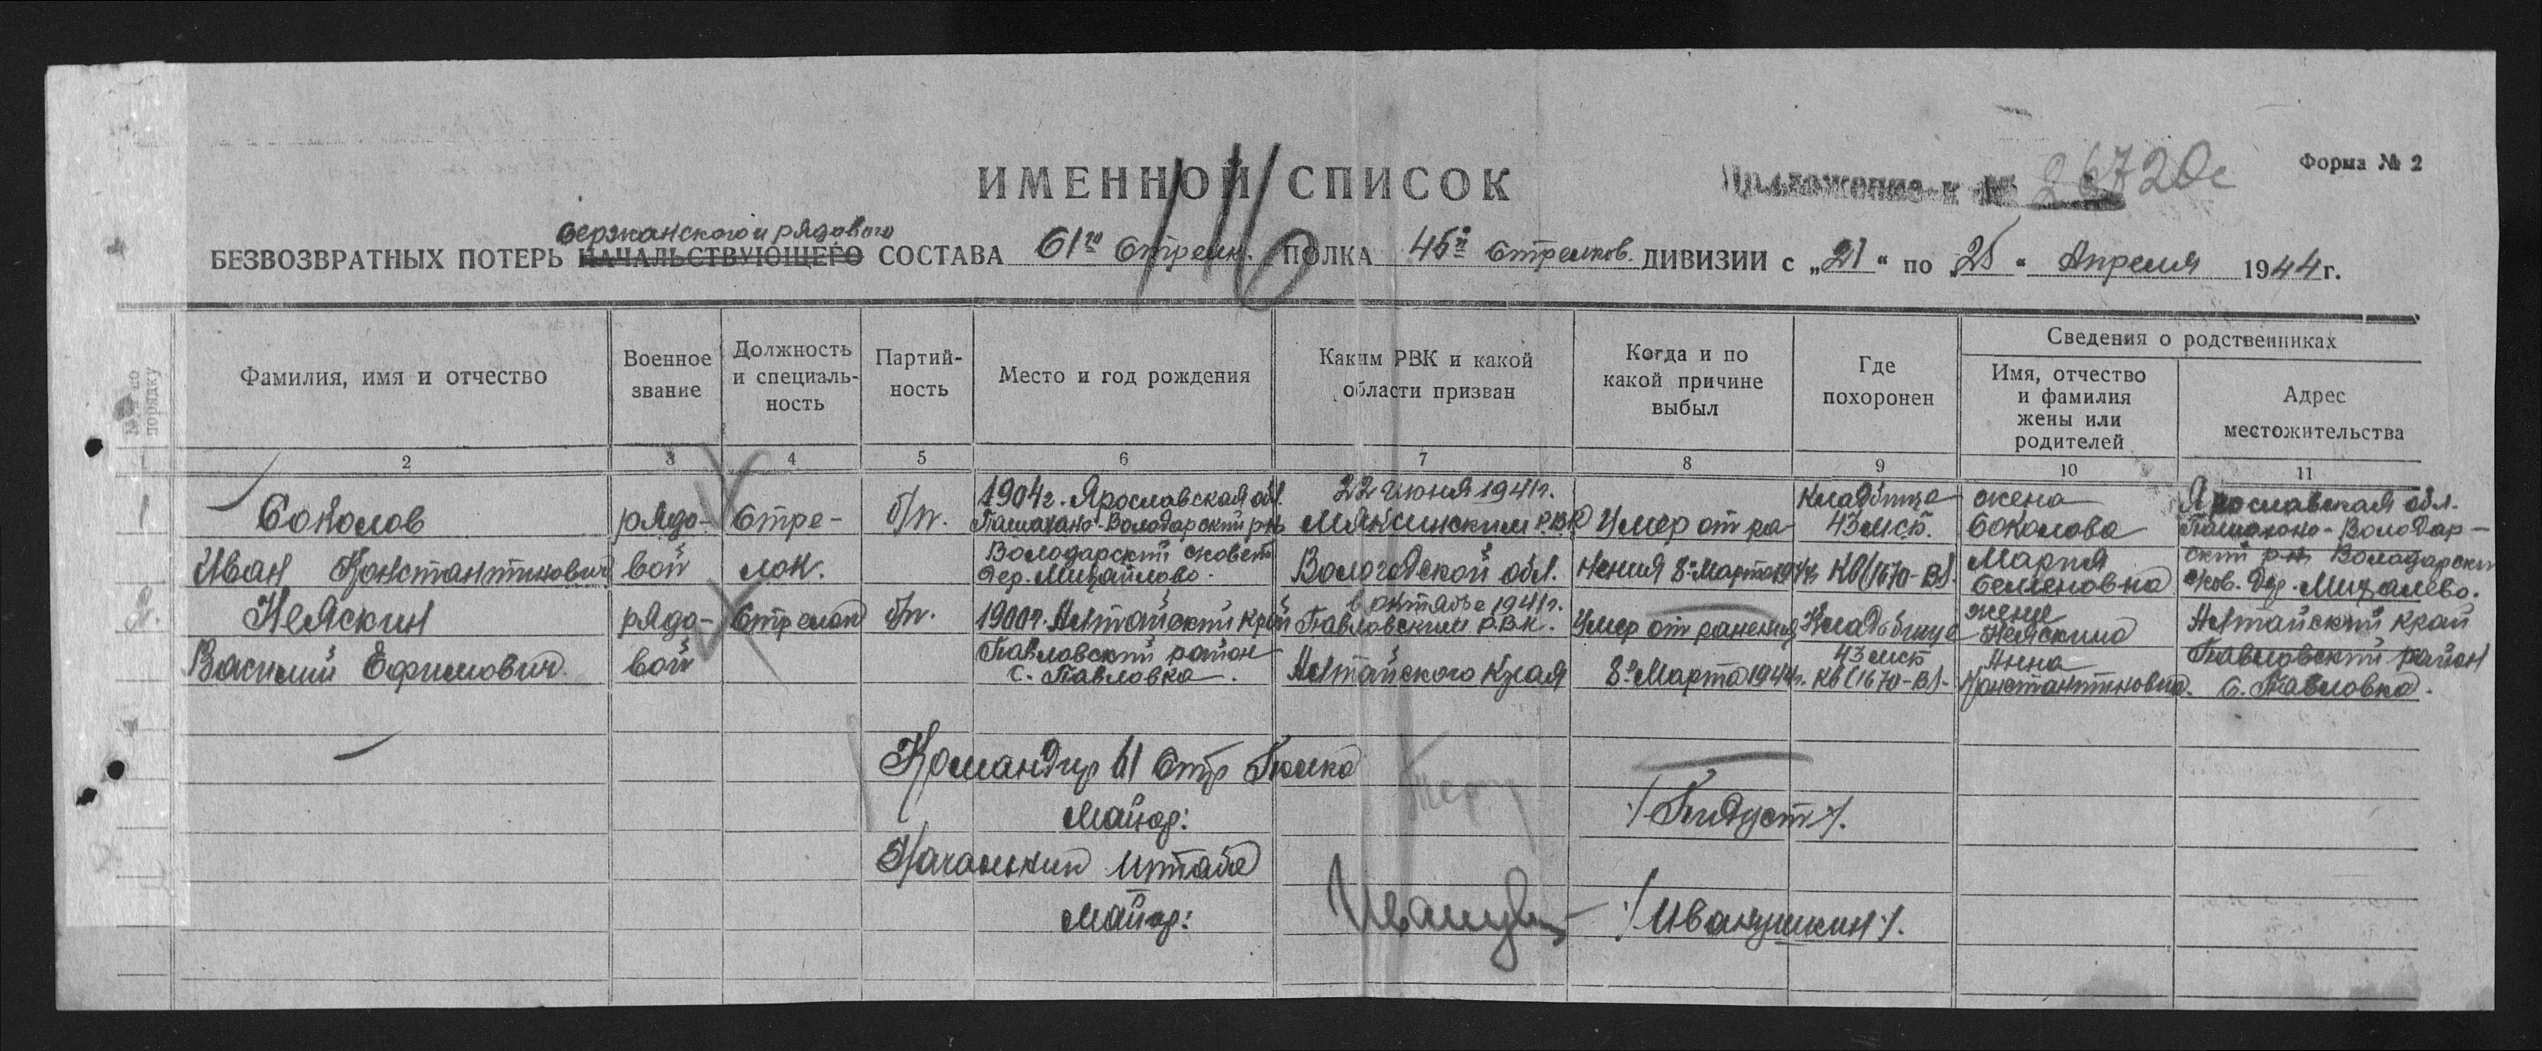 Форма № 2
ИМЕННОЙ СПИСОК
116
Приложение к № 26720с
сержанского и рядового
БЕЗВОЗВРАТНЫХ ПОТЕРЬ НАЧАЛЬСТВУЮЩЕГО СОСТАВА 61го Стрелк. ПОЛКА 45й Стрелков. ДИВИЗИИ с „21“ по „25“ Апреля 1944г.
№№ по порядку
Фамилия, имя и отчество
Военное звание
Должность и специаль-ность
Партий-ность
Место и год рождения
Каким РВК и какой области призван
Когда и по какой причине выбыл
Где похоронен
Сведения о родственниках
Имя, отчество и фамилия жены или родителей
Адрес местожительства
1 2 3 4 5 6 7 8 9 10 11
1
Соколов
Иван Константинович
рядо-
вой
Стре-
лок.
б/п.
1904г. Ярославская обл.
Пашахано-Володарский р-н
Володарский сковет
дер. Михайлово.
22 июня 1941г.
Мяксинским Р.В.К
Вологодской обл.
Умер от ра-
нения 8го Марта 1944г.
Кладбище
43 мсб.
Кв(1670-В).
жена
Соколова
Мария
Семеновна
Ярославская обл.
Пашахоно-Володар-
ский р-н Володарски
сков. Дер. Михалево.
2.
Неяскин
Василий Ефимович.
рядо-
вой
Стрелок
б/п.
1900г. Алтайский край
Павловский район
с. Павловка.
в октябре 1941г.
Павловским Р.В.К.
Алтайского Края
Умер от ранения
8го Марта 1944г.
Кладбище
43 мсб
Кв(1670-В).
жена
Неяскина
Анна
Константиновна.
Алтайский край
Павловский район
с. Павловка.
Командир 61 Стр Полка
Майор: /Пидуст/.
Начальник штаба
Майор: /Иванушкин/.